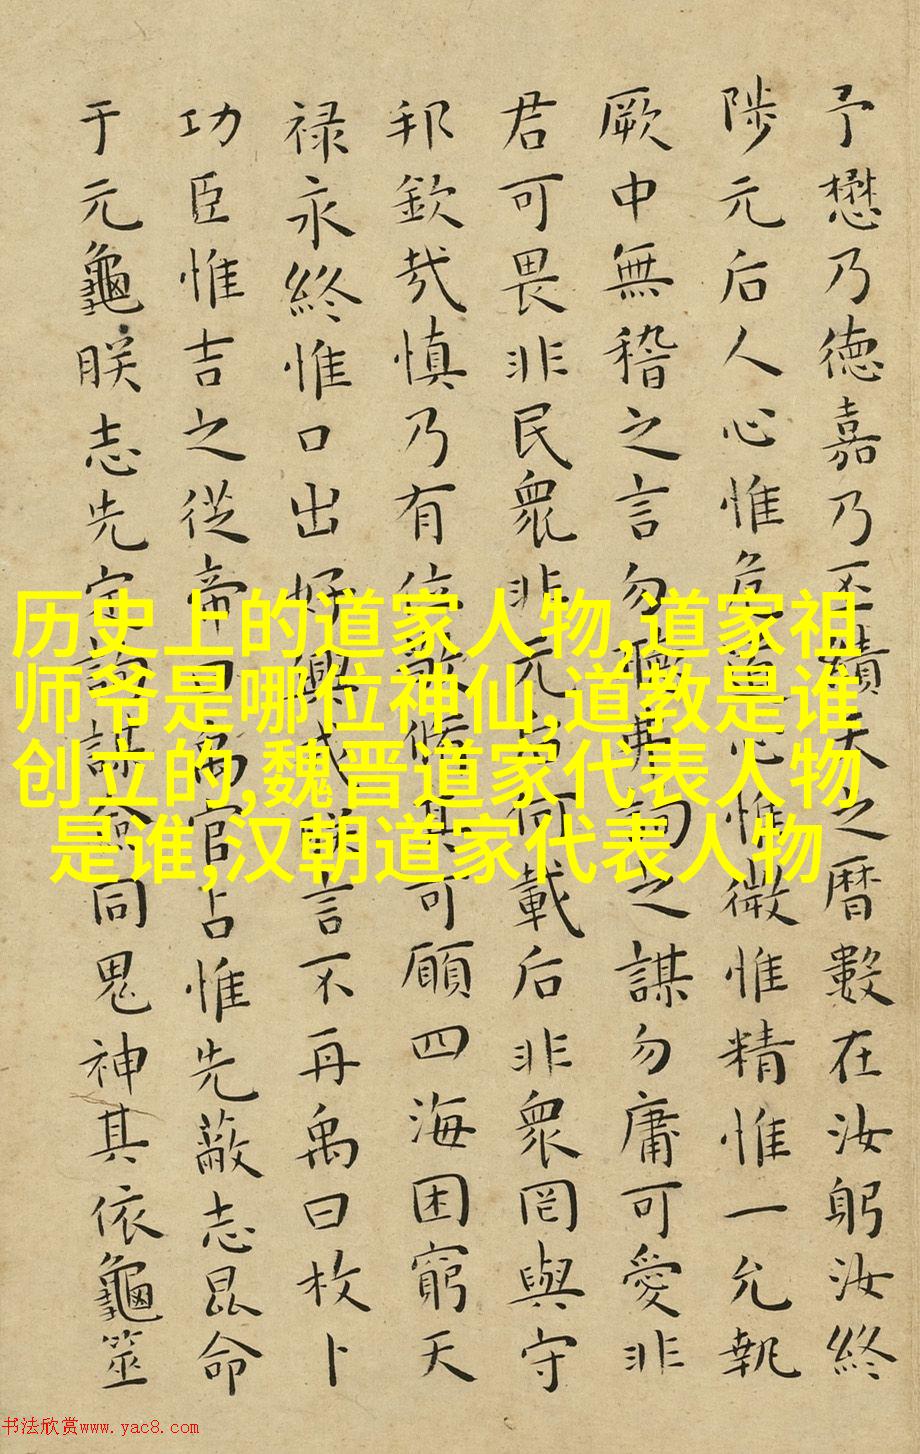 予懋乃德嘉乃丕績天之曆數在汝躬汝終
陟元后人心惟危道心惟微惟精惟一允執
厥中無稽之言勿聽弗詢之謀勿庸可愛非
君可畏非民衆非元后何載后非衆罔與守
邦欽哉慎乃有位敬脩其可願四海困窮天
禄永終惟口出好興戎朕言不再禹曰枚卜
功臣惟吉之從帝曰禹官占惟先蔽志昆命
于元龜朕志先定詢謀僉同鬼神其依龜筮
历史上的道家人物,道家祖
师爷是哪位神仙,道教是谁
创立的,魏晋道家代表人物
是谁,汉朝道家代表人物
书法欣赏www.yac8.com